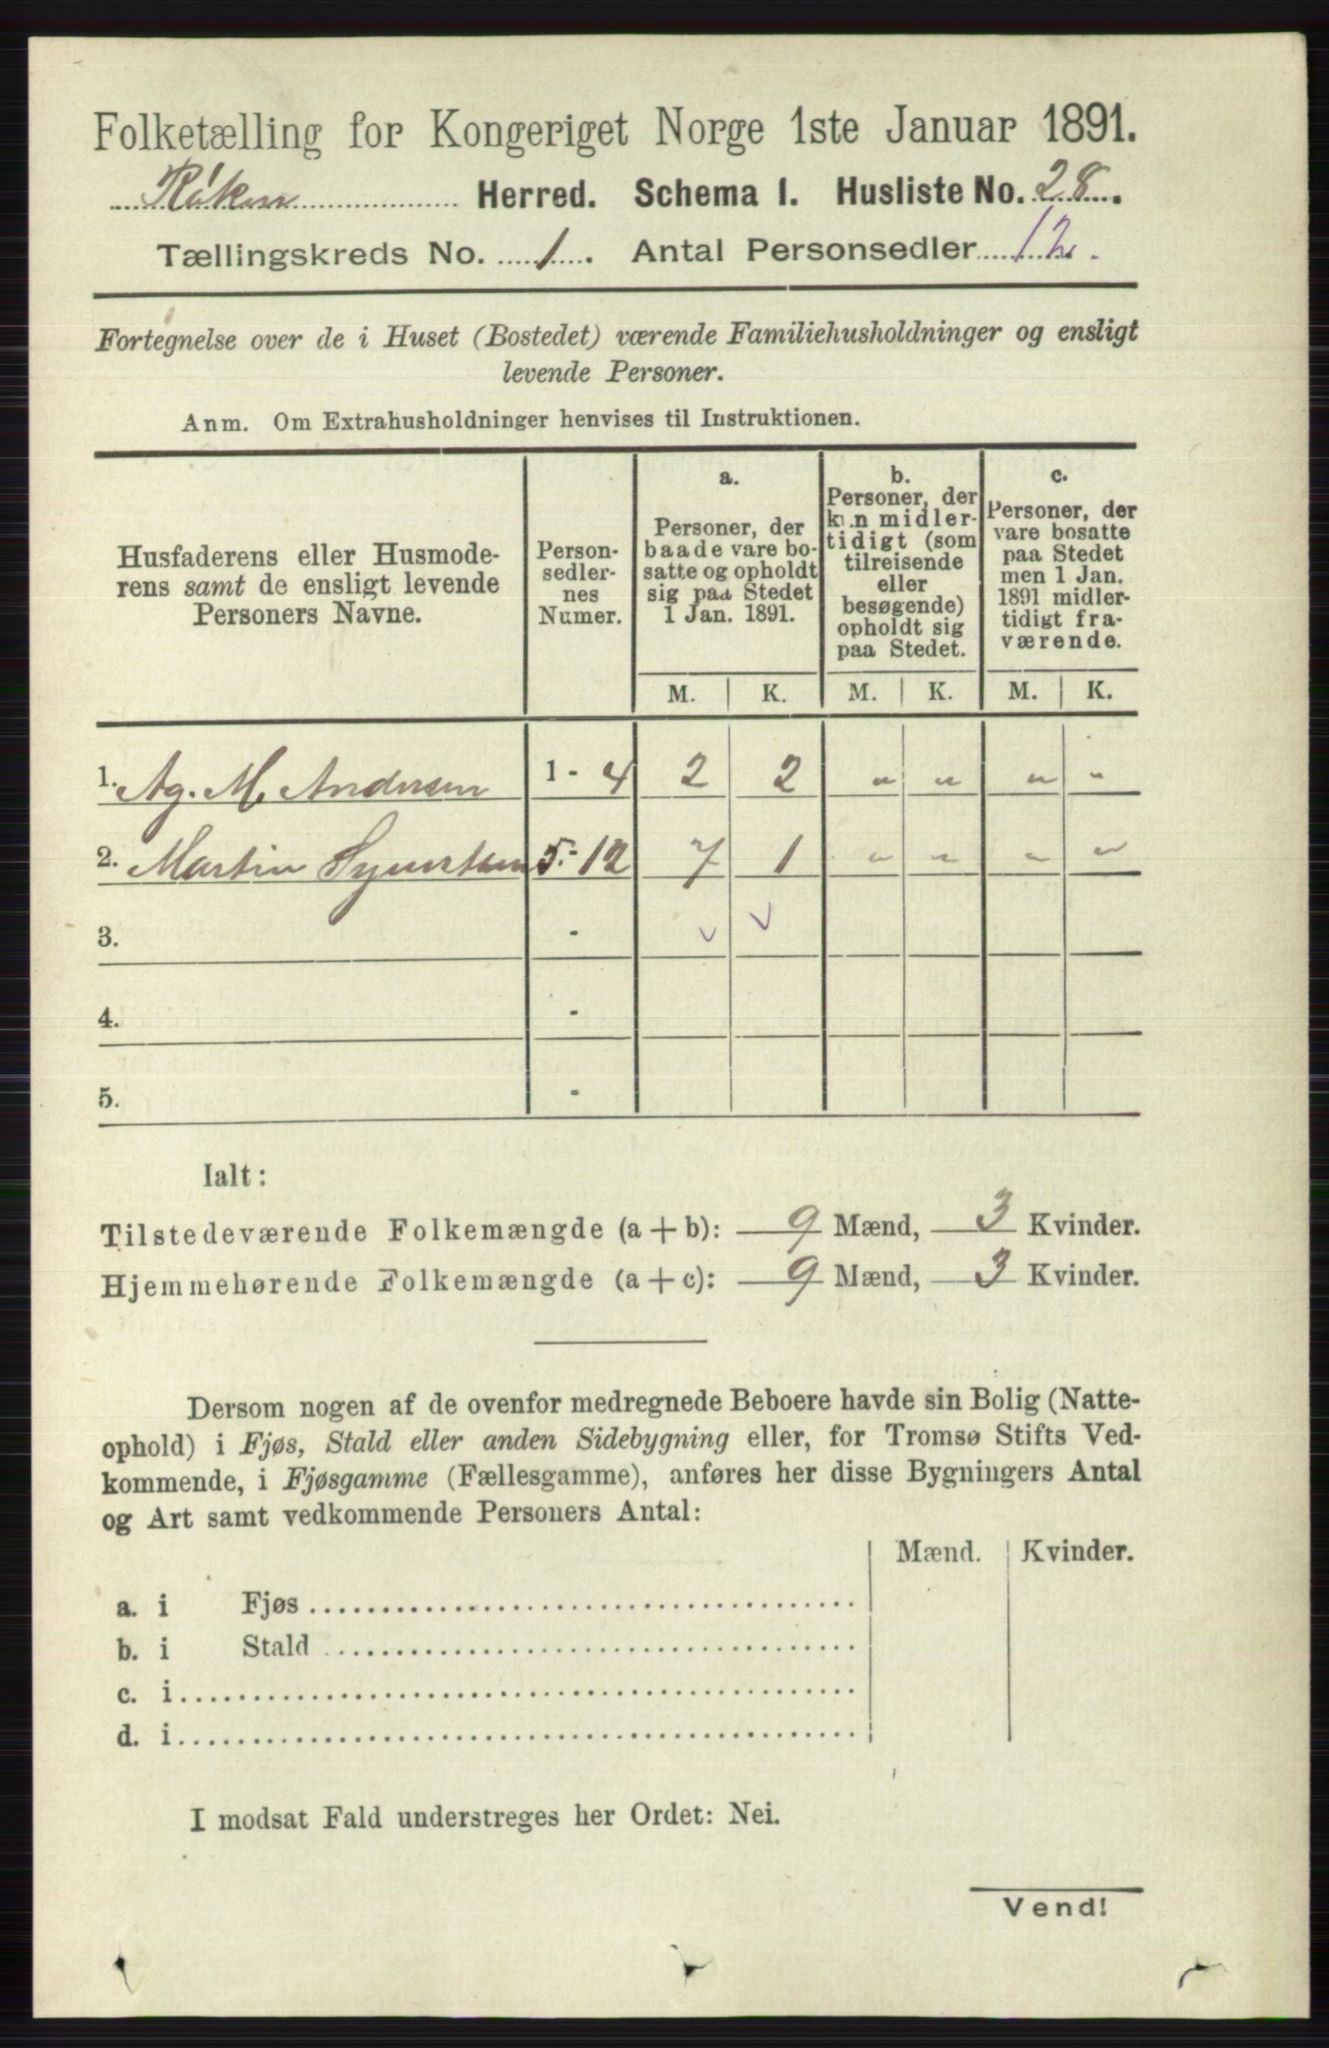 Folketælling for Kongeriget Norge 1ste Januar 1891.
Røken Herred. Schema 1. Husliste No. 28.
Tællingskreds No. 1. Antal Personsedler 12.
Fortegnelse over de i Huset (Bostedet) værende Familiehusholdninger og ensligt
levende Personer.
Anm. Om Extrahusholdninger henvises til Instruktionen.
Husfaderens eller Husmode-
rens samt de ensligt levende
Personers Navne.
Person-
sedler-
nes
Numer.
a.
Personer, der
baade vare bo-
satte og opholdt
sig paa Stedet
1 Jan. 1891.
b.
Personer, der
kun midler-
tidigt (som
tilreisende
eller
besøgende)
opholdt sig
paa Stedet.
c.
Personer, der
vare bosatte
paa Stedet
men 1 Jan.
1891 midler-
tidigt fra-
værende.
M. K. M. K. M. K.
1. Ag. M. Andersen 1 - 4 2 2 " " " "
2. Martin 5 - 12 7 1 " " " "
3. - v v
4. -
5. -
Ialt:
Tilstedeværende Folkemængde (a + b): 9 Mænd, 3 Kvinder.
Hjemmehørende Folkemængde (a + c): 9 Mænd, 3 Kvinder.
Dersom nogen af de ovenfor medregnede Beboere havde sin Bolig (Natte-
ophold) i Fjøs, Stald eller anden Sidebygning eller, for Tromsø Stifts Ved-
kommende, i Fjøsgamme (Fællesgamme), anføres her disse Bygningers Antal
og Art samt vedkommende Personers Antal:
Mænd. Kvinder.
a. i Fjøs
b. i Stald
c. i
d. i
I modsat Fald understreges her Ordet: Nei.
Vend!